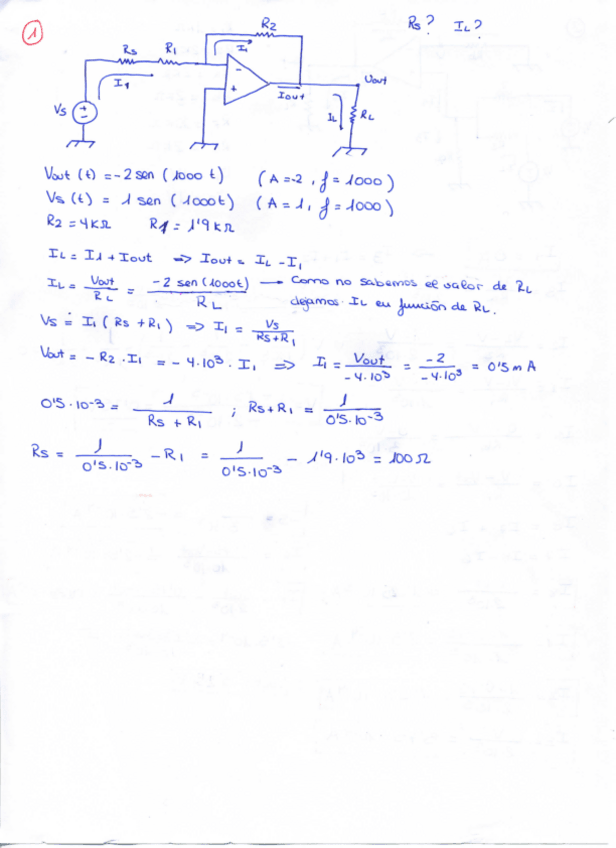 1
Rs? IL?
R2
Rs R1 I1
I1
Vs
Iout
Vout
IL RL
Vout (t) = -2 sen (1000 t) (A=-2, f = 1000)
Vs (t) = 1 sen (1000t) (A = 1, f = 1000)
R2 = 4KΩ R1 = 1'9 KΩ
IL = I1 + Iout => Iout = IL - I1
IL = Vout / RL = -2 sen (1000t) / RL → Como no sabemos el valor de RL
dejamos IL en función de RL.
Vs = I1 ( Rs + R1 ) => I1 = Vs / Rs+R1
Vout = - R2 · I1 = - 4·10³ · I1 => I1 = Vout / -4·10³ = -2 / -4·10³ = 0'5 m A
0'5·10-³ = 1 / Rs + R1 ; Rs+R1 = 1 / 0'5·10-³
Rs = 1 / 0'5·10-³ - R1 = 1 / 0'5·10-³ - 1'9·10³ = 100 Ω